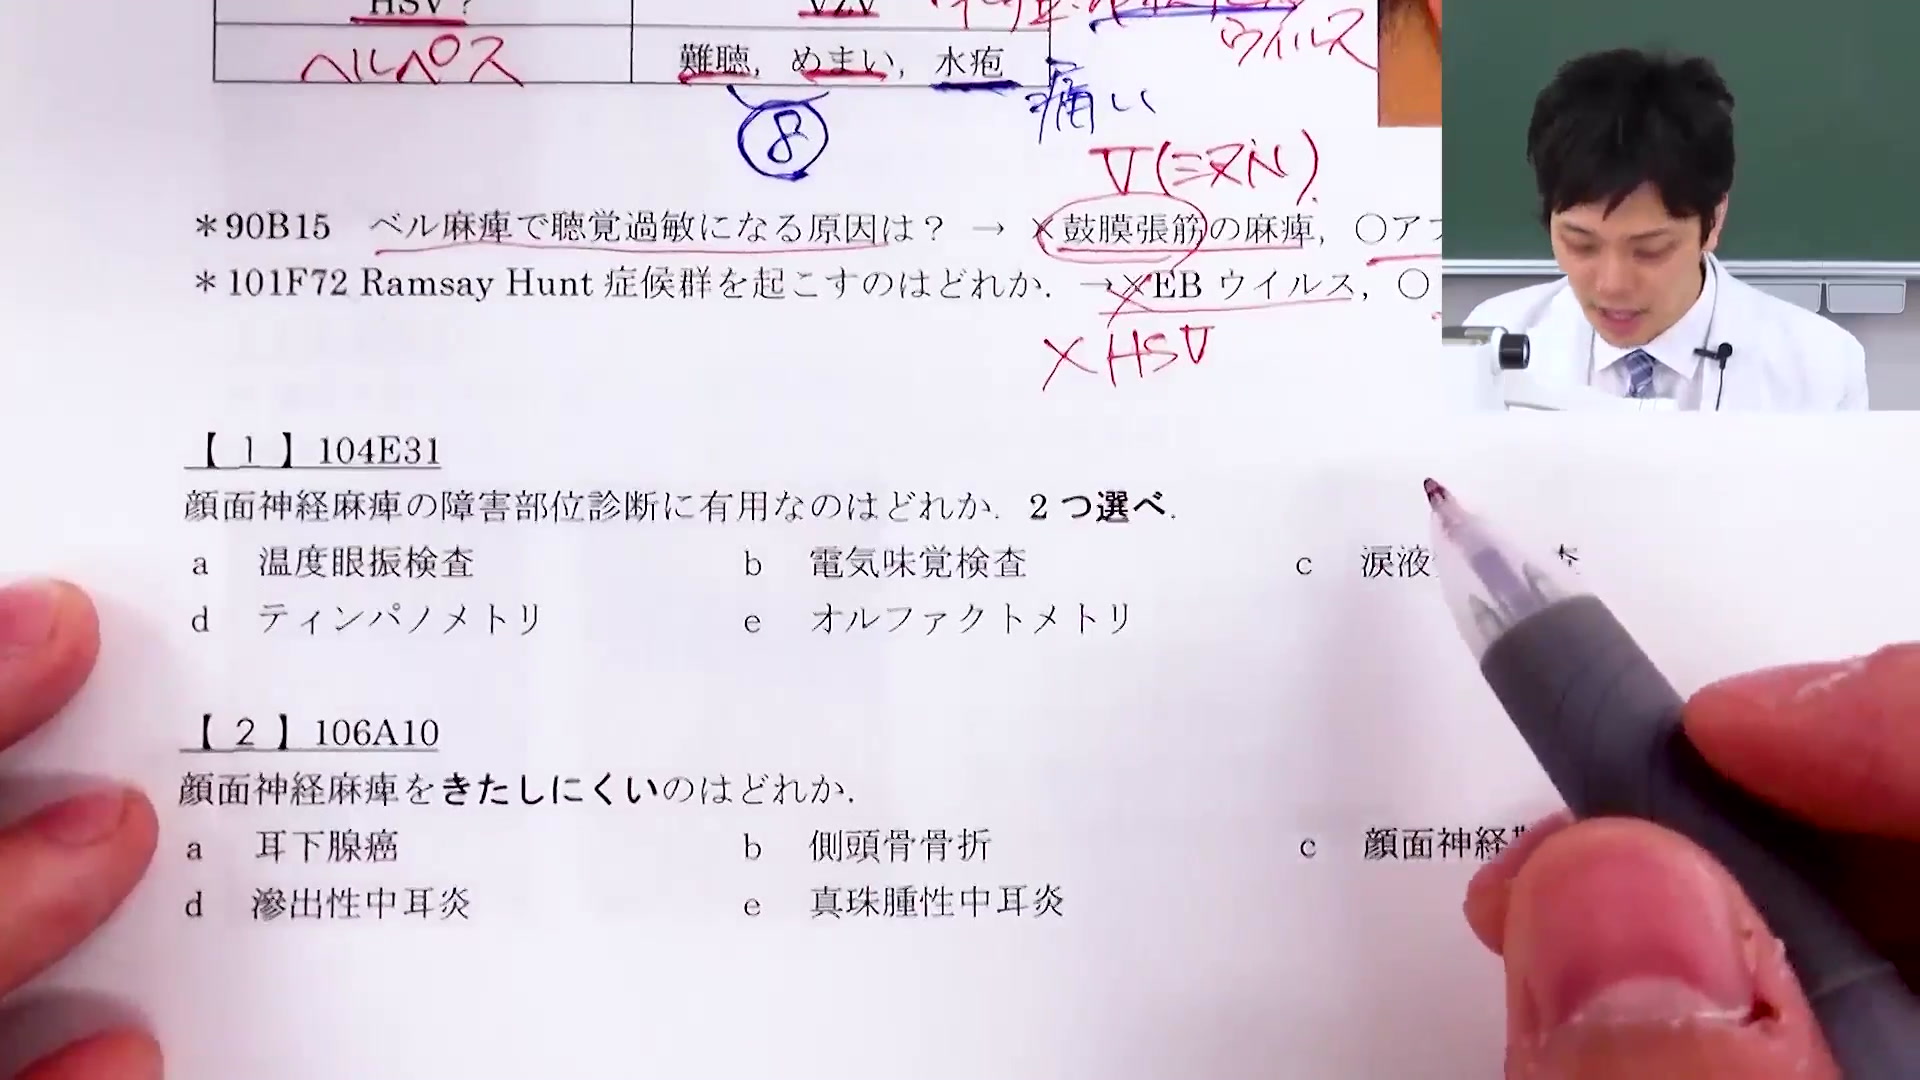 HSV? VZV
ウイルス
ヘルペス 難聴, めまい, 水疱
痛い
8
V(ミヌキ)
*90B15 ベル麻痺で聴覚過敏になる原因は? → ×鼓膜張筋の麻痺, ○ア
*101F72 Ramsay Hunt 症候群を起こすのはどれか. →×EB ウイルス, ○
× HSV
【 1 】 104E31
顔面神経麻痺の障害部位診断に有用なのはどれか. 2つ選べ.
a 温度眼振検査 b 電気味覚検査 c 涙液
d ティンパノメトリ e オルファクトメトリ
【 2 】 106A10
顔面神経麻痺をきたしにくいのはどれか.
a 耳下腺癌 b 側頭骨骨折 c 顔面神経
d 滲出性中耳炎 e 真珠腫性中耳炎